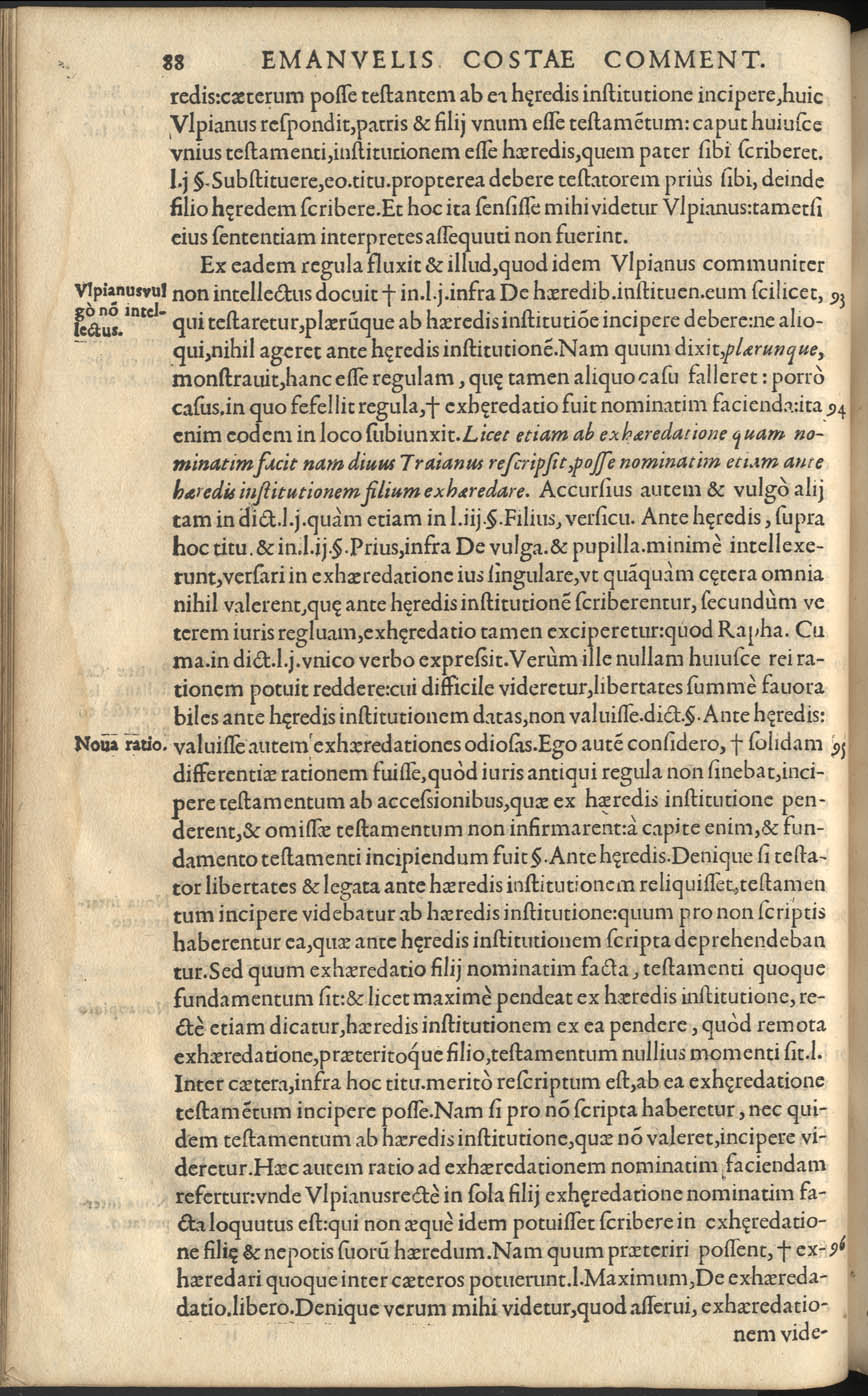 88 EMANVELIS COSTAE COMMENT.
redis:cæterum posse testantem ab ea hęredis institutione incipere,huic
Vlpianus respondit,patris & filij vnum esse testamẽtum: caput huiusce
vnius testamenti,institutionem esse hæredis,quem pater sibi scriberet.
l.j §.Substituere,eo.titu.propterea debere testatorem priùs sibi, deinde
filio hęredem scribere.Et hoc ita sensisse mihi videtur Vlpianus:tametsi
eius sententiam interpretes assequuti non fuerint.
Ex eadem regula fluxit & illud,quod idem Vlpianus communiter
Vlpianus vul
gò nõ intel-
lectus.
non intellectus docuit † in.l.j.infra De hæredib.instituen.eum scilicet, 93
qui testaretur,plærũque ab hæredis institutiõe incipere debere:ne alio-
qui,nihil ageret ante hęredis institutionẽ.Nam quum dixit,plærunque,
monstrauit,hanc esse regulam, quę tamen aliquo casu falleret: porrò
casus,in quo fefellit regula,† exhęredatio fuit nominatim facienda:ita 94
enim eodem in loco subiunxit.Licet etiam ab exhæredatione quam no-
minatim facit nam diuus Traianus rescripsit,posse nominatim etiam ante
hæredis institutionem filium exhæredare. Accursius autem & vulgò alij
tam in dict.l.j.quàm etiam in l.iij.§.Filius, versicu. Ante hęredis, supra
hoc titu. & in.l.ij.§.Prius,infra De vulga.& pupilla.minimè intellexe-
runt,versari in exhæredatione ius singulare,vt quãquàm cętera omnia
nihil valerent,quę ante hęredis institutionẽ scriberentur, secundùm ve
terem iuris regluam,exhęredatio tamen exciperetur:quod Rapha. Cu
ma.in dict.l.j.vnico verbo expressit.Verùm ille nullam huiusce rei ra-
tionem potuit reddere:cui difficile videretur,libertates summè fauora
biles ante hęredis institutionem datas,non valuisse.dict.§.Ante hęredis:
Noua ratio.
valuisse autem exhæredationes odiosas.Ego autẽ considero, † solidam 95
differentiæ rationem fuisse,quòd iuris antiqui regula non sinebat,inci-
pere testamentum ab accessionibus,quæ ex hæredis institutione pen-
derent,& omissæ testamentum non infirmarent:à capite enim,& fun-
damento testamenti incipiendum fuit §.Ante hęredis.Denique si testa-
tor libertates & legata ante hæredis institutionem reliquisset,testamen
tum incipere videbatur ab hæredis institutione:quum pro non scriptis
haberentur ea,quæ ante hęredis institutionem scripta deprehendeban
tur.Sed quum exhæredatio filij nominatim facta, testamenti quoque
fundamentum sit:& licet maximè pendeat ex hæredis institutione, re-
ctè etiam dicatur,hæredis institutionem ex ea pendere, quòd remota
exhæredatione,præteritoq́ue filio,testamentum nullius momenti sit.l.
Inter cætera,infra hoc titu.meritò rescriptum est,ab ea exhęredatione
testamẽtum incipere posse.Nam si pro nõ scripta haberetur, nec qui-
dem testamentum ab hæredis institutione,quæ nõ valeret,incipere vi-
deretur.Hæc autem ratio ad exhæredationem nominatim faciendam
refertur:vnde Vlpianus rectè in sola filij exhęredatione nominatim fa-
cta loquutus est:qui non æquè idem potuisset scribere in exhęredatio-
ne filię & nepotis suorũ hæredum.Nam quum præteriri possent, † ex- 96
hæredari quoque inter cæteros potuerunt.l.Maximum,De exhæreda-
datio.libero.Denique verum mihi videtur,quod asserui, exhæredatio-
nem vide-